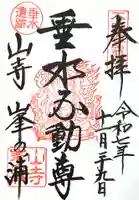 奉拝
令和七年
十一月二十九日
垂水不動尊
垂水
遺跡
山寺
峯の浦
山寺